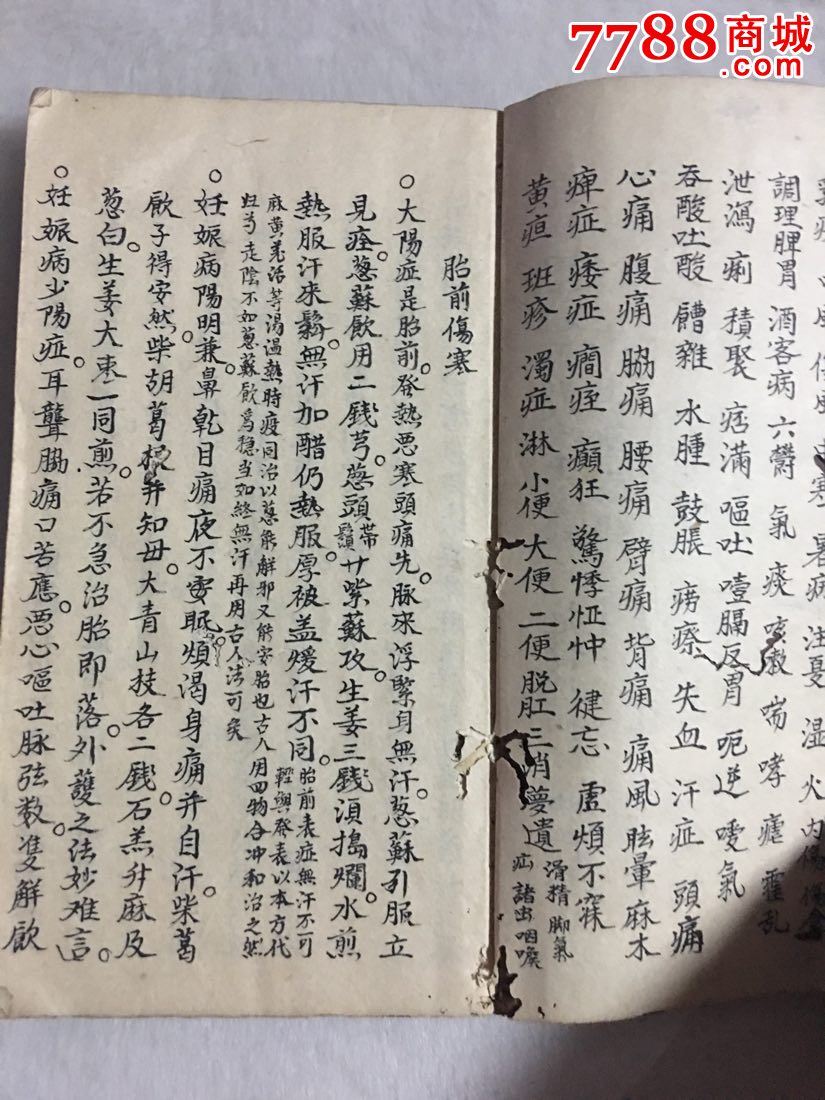 7788商城
調理脾胃 酒客病 六欝 氣 痰 咳嗽 喘 哮 瘧 霍乱
泄瀉 痢 積聚 痞滿 嘔吐 噎膈 反胃 呃逆 噯氣
吞酸吐酸 饋雜 水腫 鼓脹 痨瘵 失血 汗症 頭痛
心痛 腹痛 脇痛 腰痛 臂痛 背痛 痛風 眩暈 麻木
痺症 痿症 癇痓 癲狂 驚悸怔忡 健忘 虛煩不寐
黄疸 班疹 濁症 淋 小便 大便 二便 脱肛 三消 夢遺
滑精 脚氣
疝 諸虫 咽喉
胎前傷寒
○太陽症是胎前。發熱惡寒頭痛先。脉來浮緊身無汗。葱蘇引服立
見痊。葱蘇飲用二錢芎。葱頭帶鬚廿紫蘇攻。生姜三錢湏搗爛。水煎
熱服汗来鬆。無汗加醋仍熱服。厚被盖煖汗不同。胎前表症無汗不可
輕與發表以本方代
麻黄羌活等湯温熱時疫同治以葱能解邪又能安胎也古人用四物合冲和治之然
归芍走陰不如葱蘇飲爲穩当如終無汗再用古人法可矣
○妊娠病陽明兼。鼻乾目痛夜不安眠。煩渴身痛并自汗。柴葛
飲子得安然。柴胡葛根并知母。大青山技各二錢。石羔升麻及
葱白。生姜大枣一同煎。若不急治胎即落。外護之法妙难言。
○妊娠病少陽症。耳聾脇痛口苦應。惡心嘔吐脉弦数。雙解飲